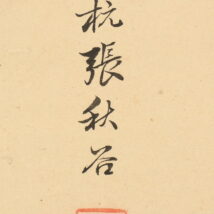 杭張秋谷